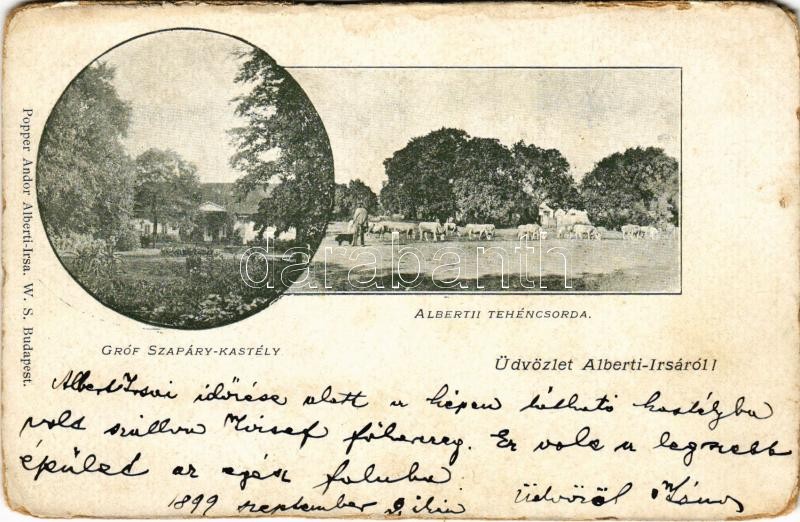 Popper Andor Alberti-Irsa. W. S. Budapest.
darabanth
ALBERTII TEHÉNCSORDA.
GRÓF SZAPÁRY-KASTÉLY
Üdvözlet Alberti-Irsáról!
Alberti Irsai időzése alatt a képen látható kastélyba
volt szállva József főherceg. Ez volt a legszebb
épület az egész faluba
1899 szeptember 9 ikén Üdvözöl János